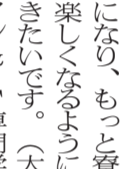 になり、もっと寮
楽しくなるように
きたいです。（大